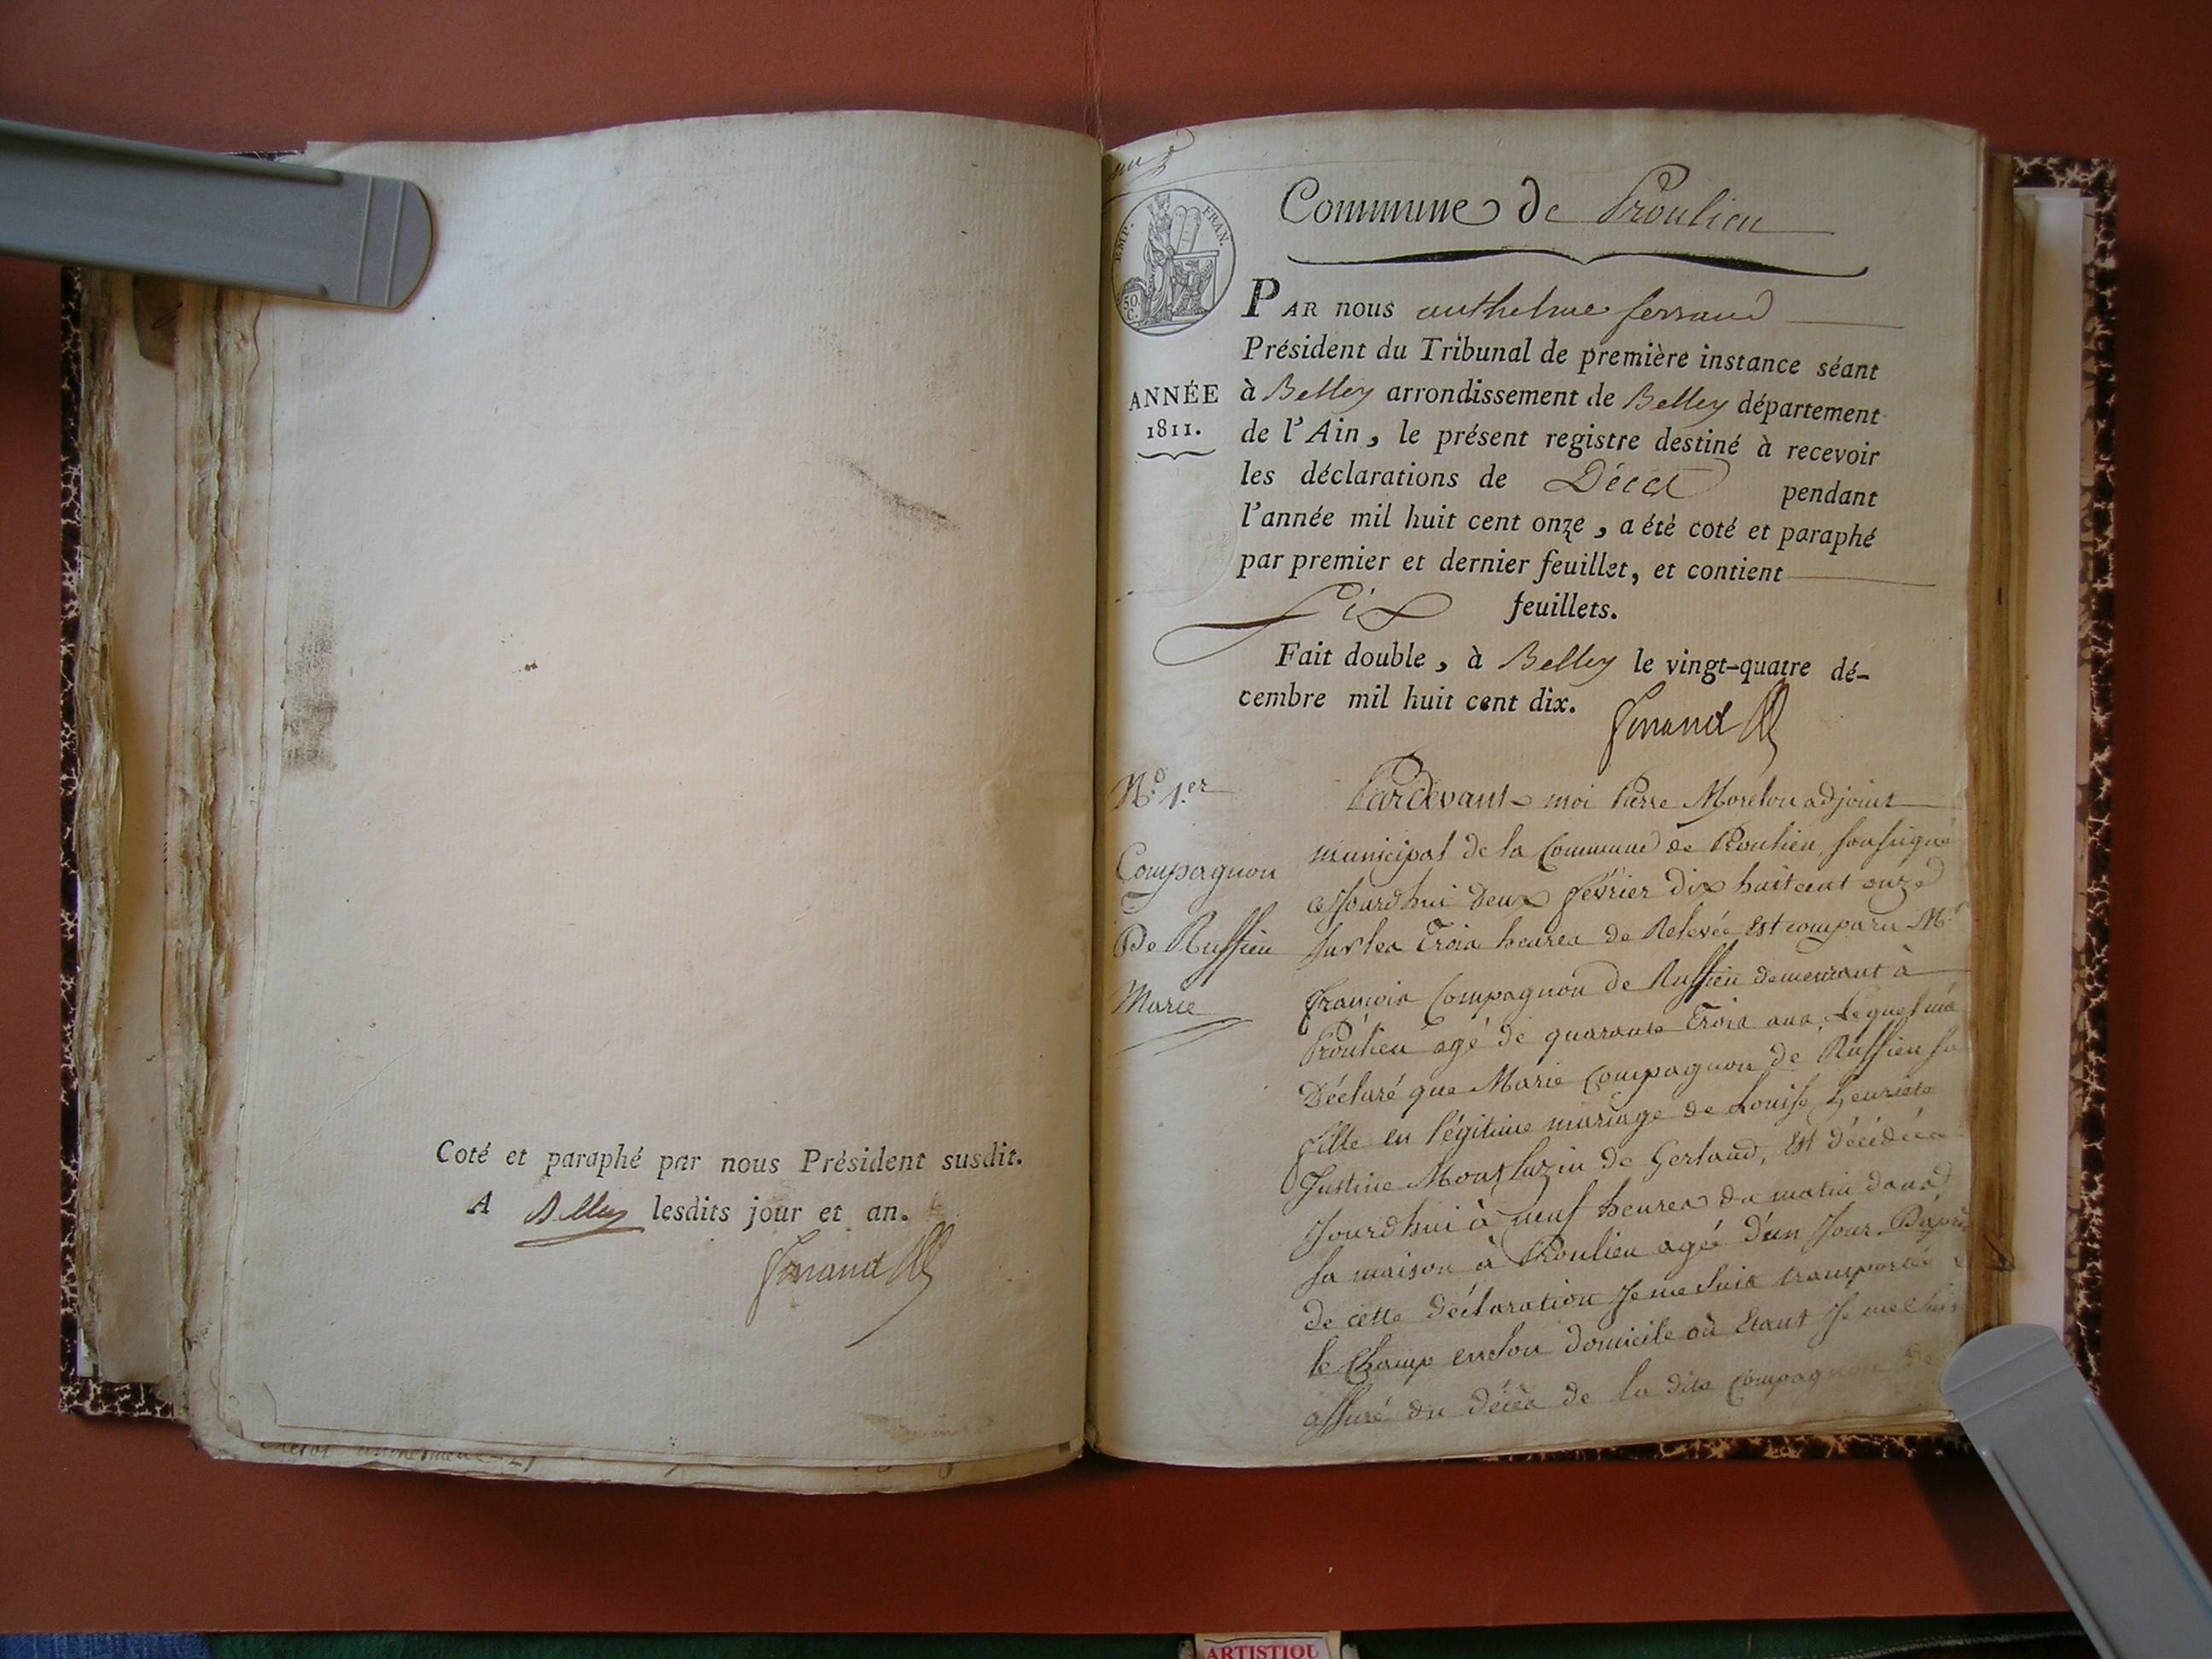 Coté et paraphé par nous Président susdit.
A Belley lesdits jour et an.
Ferrand
Commune de Proulieu
EMP. FRAN.
50 C.
ANNÉE
1811.
PAR nous anthelme ferrand
Président du Tribunal de première instance séant
à Belley arrondissement de Belley département
de l'Ain, le présent registre destiné à recevoir
les déclarations de Décès pendant
l'année mil huit cent onze, a été coté et paraphé
par premier et dernier feuillet, et contient
Six feuillets.
Fait double, à Belley le vingt-quatre dé-
cembre mil huit cent dix.
Ferrand
N.º 1.er
Compagnon
De Ruffieu
Marie
Pardevant moi Pierre Moreton adjoint
municipal de la Commune de Proulieu, soussigné
cejourdhui deux février dix huit cent onze
sur les Trois heures de Relevée Est comparu Mr
François Compagnon de Ruffieu demeurant à
Proulieu agé de quarante Trois ans, Lequel m'a
Déclaré que Marie Compagnon de Ruffieu sa
fille en légitime mariage de Louise henriete
Justine Montluzin de Gerland, Est décédée
Jourdhui à neuf heures du matin dans
sa maison à Proulieu agée d'un Jour. D'après
de cette Déclaration Je me suis transporté
le Champ en son domicile où Etant Je me suis
assuré du décès de la dite Compagnon de
ARTISTIQU